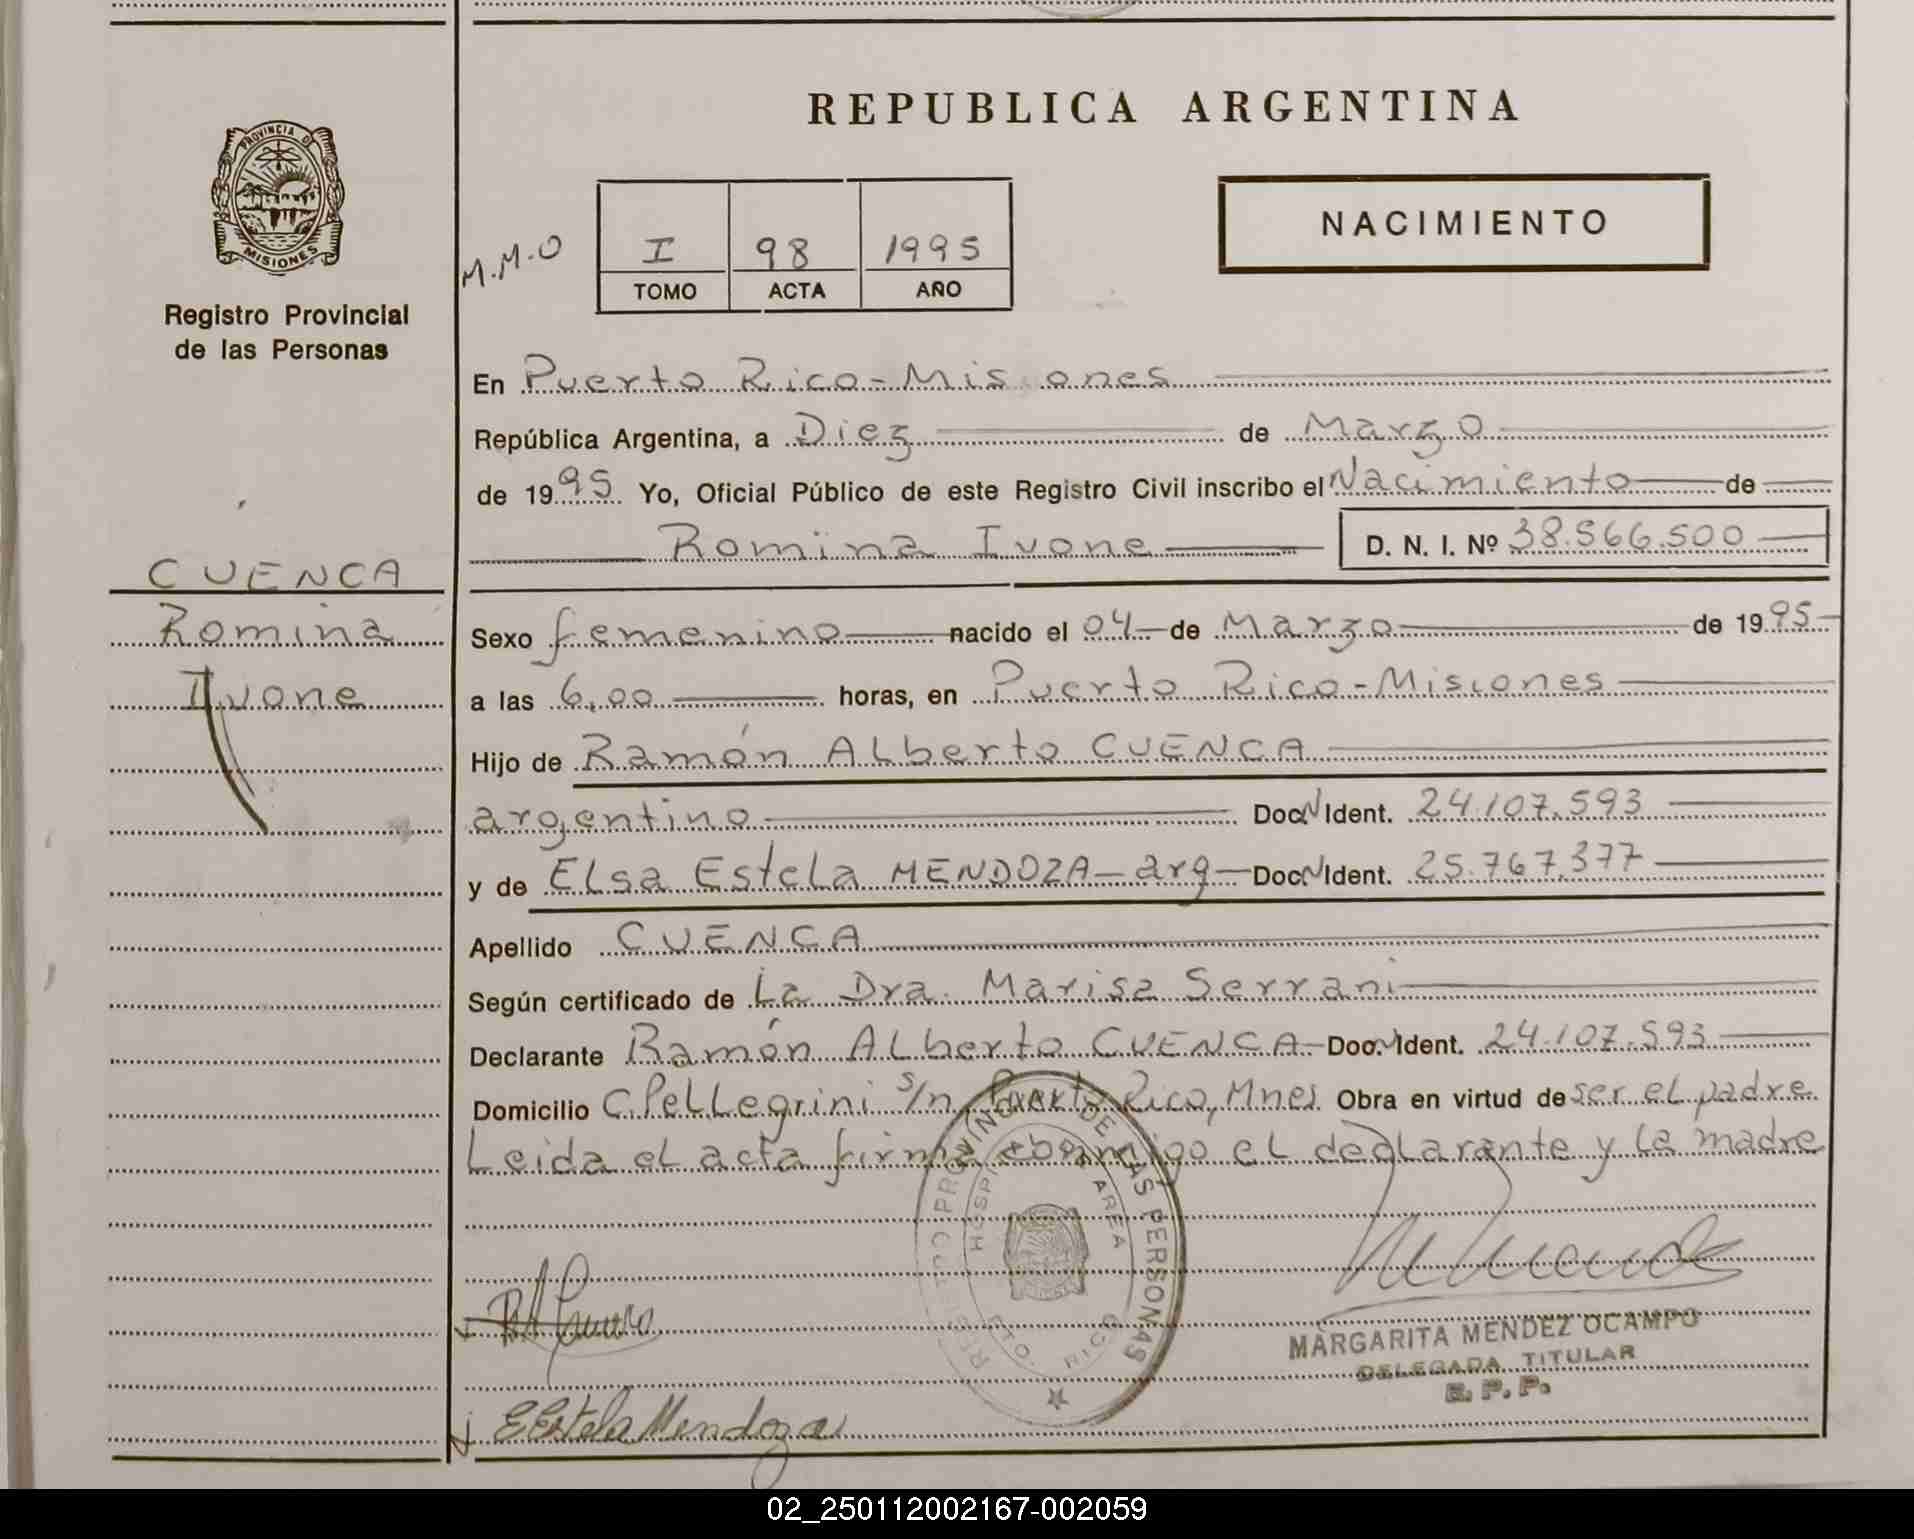 PROVINCIA DE
MISIONES
Registro Provincial
de las Personas
CUENCA
Romina
Ivone
REPUBLICA ARGENTINA
NACIMIENTO
M.M.O
I 98 1995
TOMO ACTA AÑO
En Puerto Rico-Misiones
República Argentina, a Diez de Marzo
de 1995 Yo, Oficial Público de este Registro Civil inscribo el Nacimiento de
Romina Ivone D. N. I. Nº 38.566.500
Sexo femenino nacido el 04 de Marzo de 1995
a las 6,00 horas, en Puerto Rico-Misiones
Hijo de Ramón Alberto CUENCA
argentino Doc. N Ident. 24.107.593
y de Elsa Estela MENDOZA - arg - Doc. N Ident. 25.767.377
Apellido CUENCA
Según certificado de la Dra. Marisa Serrani
Declarante Ramón Alberto CUENCA - Doc. N Ident. 24.107.593
Domicilio C. Pellegrini s/n, Puerto Rico, Mnes Obra en virtud de ser el padre
Leida el acta firma conmigo el declarante y la madre
REGISTRO PROVINCIAL DE LAS PERSONAS
HOSPITAL AREA
PTO. RICO
MARGARITA MENDEZ OCAMPO
DELEGADA TITULAR
R. P. P.
E Estela Mendoza
02_250112002167-002059